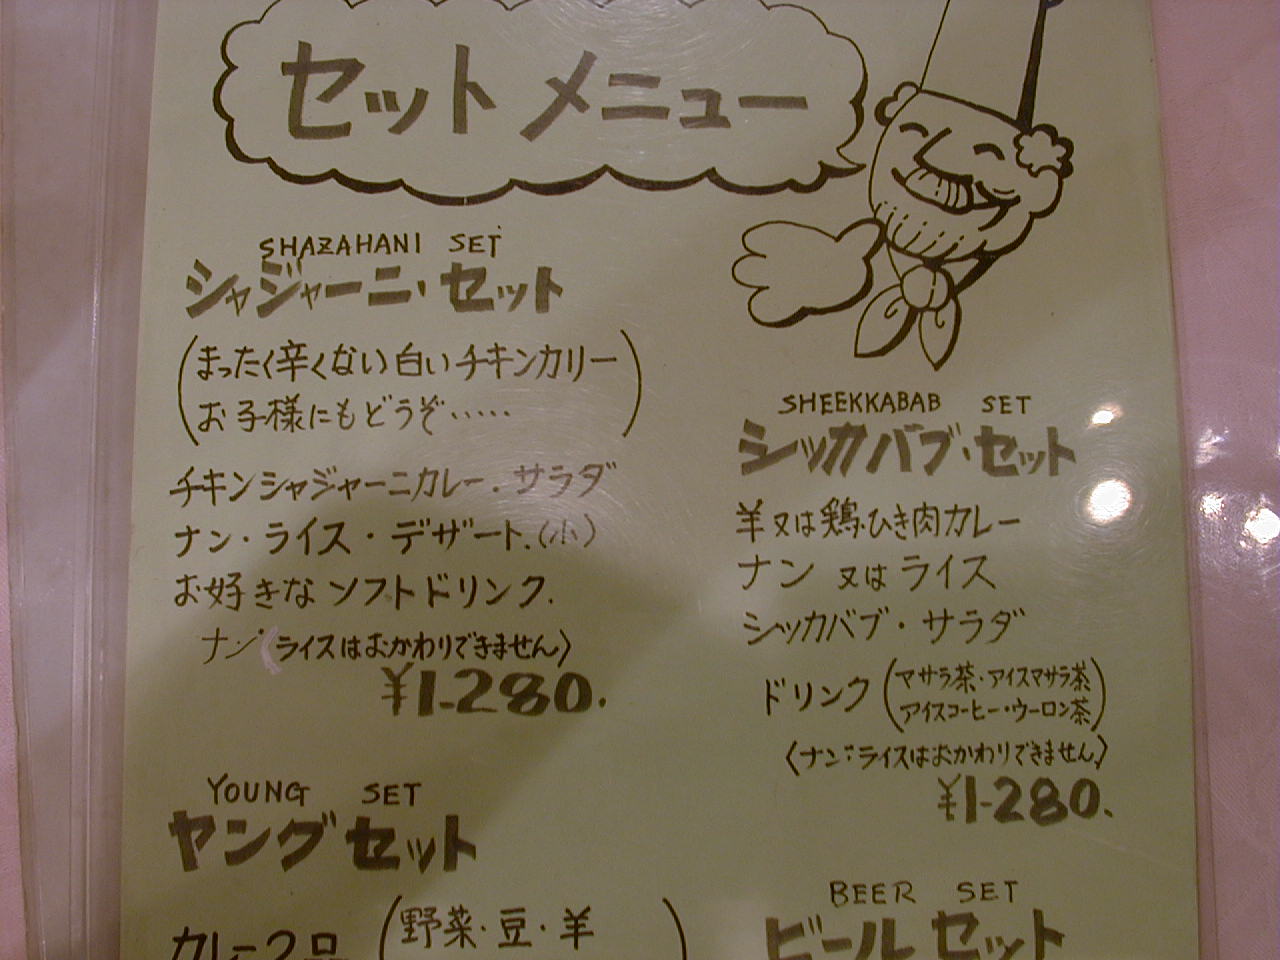 セットメニュー
SHAZAHANI SET
シャジャーニ・セット
まったく辛くない白いチキンカリー
お子様にもどうぞ‥‥‥
チキンシャジャーニカレー・サラダ
ナン・ライス・デザート.(小)
お好きなソフトドリンク.
ナン〈ライスはおかわりできません〉
¥1-280.
YOUNG SET
ヤングセット
カレー2品(野菜・豆・羊
SHEEKKABAB SET
シッカバブ・セット
羊又は鶏・ひき肉カレー
ナン 又は ライス
シッカバブ・サラダ
ドリンク(マサラ茶・アイスマサラ茶
アイスコーヒー・ウーロン茶)
〈ナン・ライスはおかわりできません〉
¥1-280.
BEER SET
ビールセット